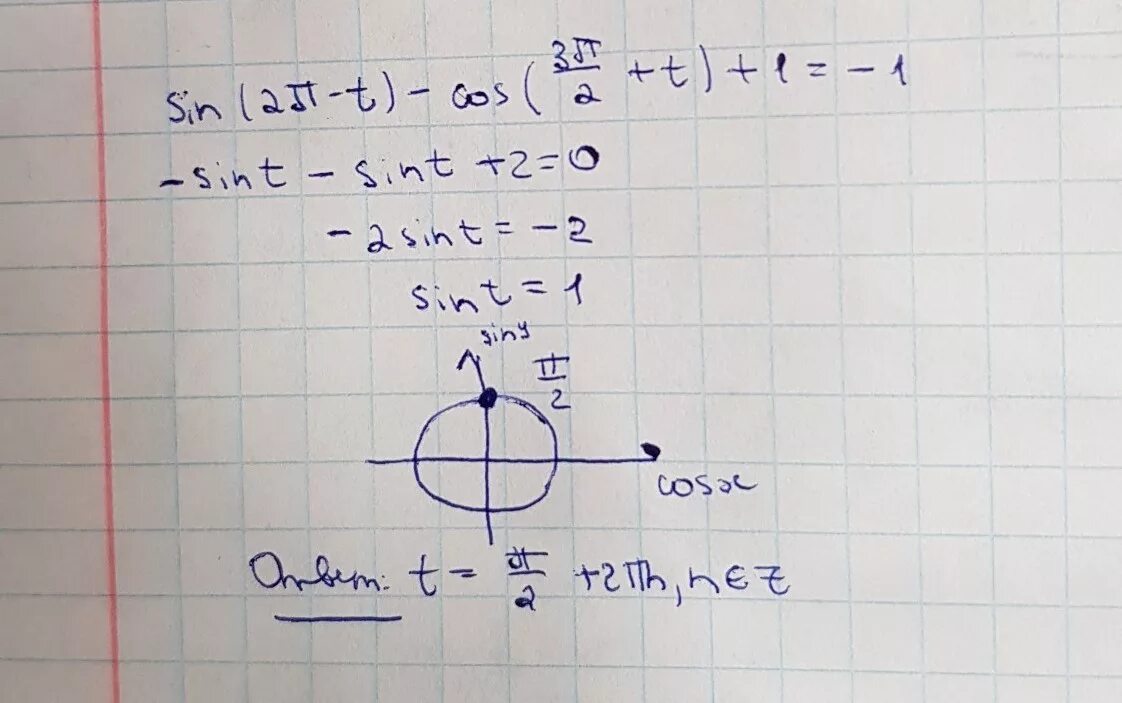 sin(2π-t) - cos(3π/2 + t) + 1 = -1
-sint - sint + 2 = 0
-2sint = -2
sint = 1
siny
π/2
cosx
Ответ: t = π/2 + 2πn, n∈Z